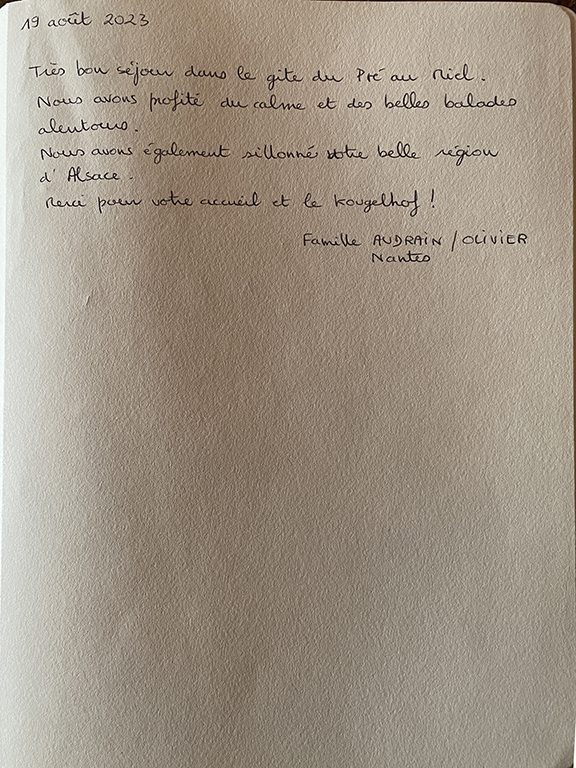 19 août 2023
Très bon séjour dans le gite du Pré au Miel.
Nous avons profité du calme et des belles balades
alentours.
Nous avons également sillonné votre belle région
d'Alsace.
Merci pour votre accueil et le Kougelhof !
Famille AUDRAIN / OLIVIER
Nantes